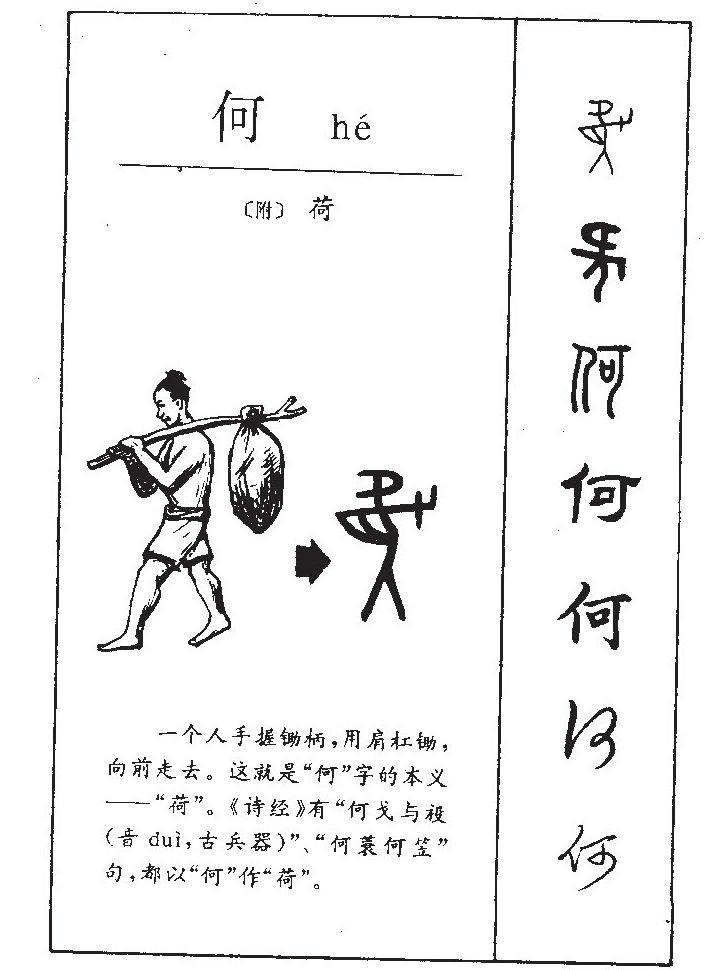 何 hé
〔附〕 荷
一个人手握锄柄，用肩杠锄，
向前走去。这就是“何”字的本义
——“荷”。《诗经》有“何戈与祋
（音 duì，古兵器）”、“何蓑何笠”
句，都以“何”作“荷”。
何
何
何
何
何
何
何